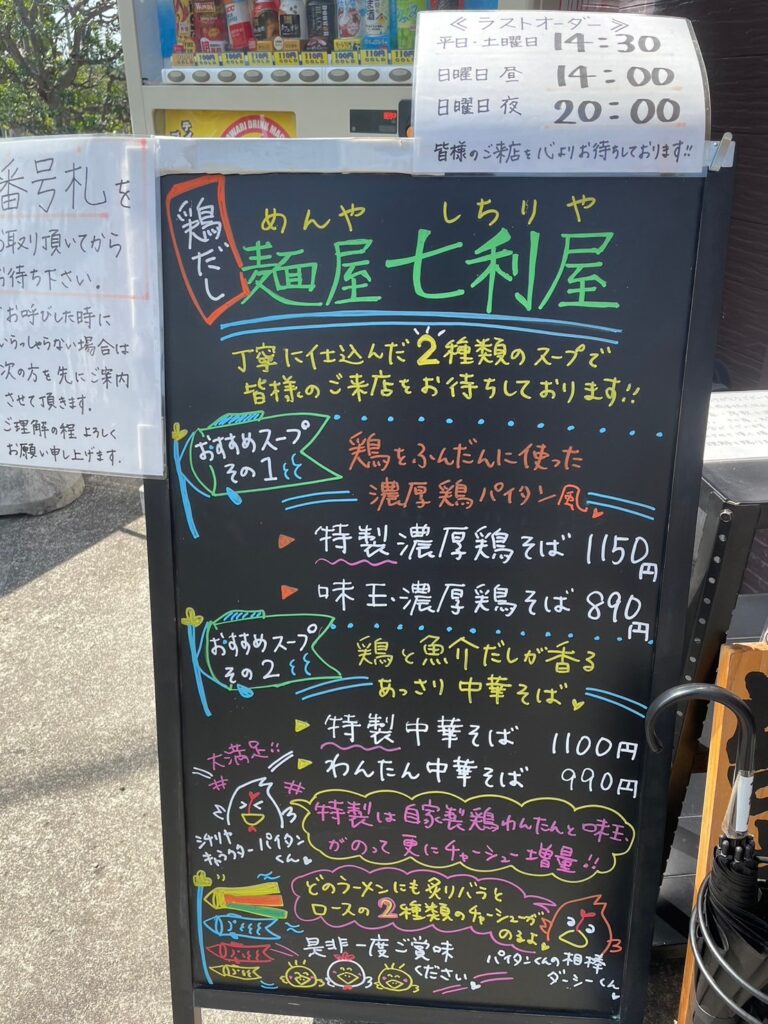 ≪ラストオーダー≫
平日・土曜日 14:30
日曜日 昼 14:00
日曜日 夜 20:00
皆様のご来店を心よりお待ちしております!!
番号札を
お取り頂いてから
お待ち下さい.
お呼びした時に
いらっしゃらない場合は
次の方を先にご案内
させて頂きます.
ご理解の程よろしく
お願い申し上げます.
鶏だし
めんや しちりや
麺屋七利屋
丁寧に仕込んだ2種類のスープで
皆様のご来店をお待ちしております!!
おすすめスープ
その1
鶏をふんだんに使った
濃厚鶏パイタン風
特製濃厚鶏そば 1150円
味玉濃厚鶏そば 890円
おすすめスープ
その2
鶏と魚介だしが香る
あっさり中華そば
特製中華そば 1100円
わんたん中華そば 990円
大満足!!
シチリヤ
キャラクター パイタン
くん
特製は自家製鶏わんたんと味玉
がのって更にチャーシュー増量!!
どのラーメンにも炙りバラと
ロースの2種類のチャーシューが
のるよ
パイタンくんの相棒
ダーシーくん
是非一度ご賞味
ください